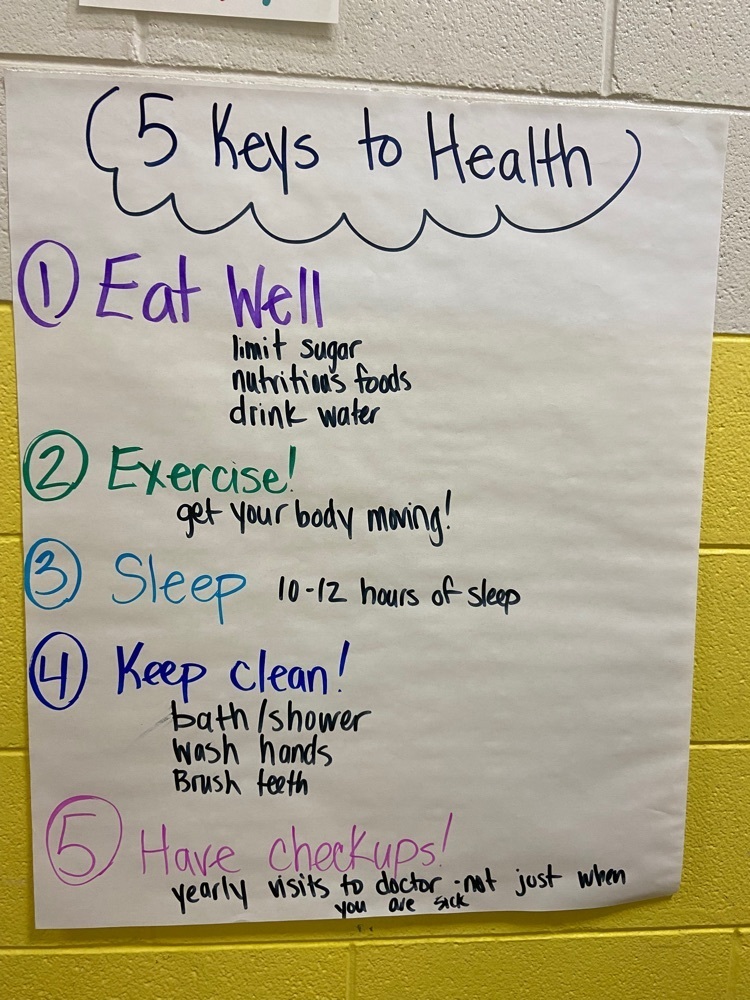 5 Keys to Health
1 Eat Well
limit sugar
nutritious foods
drink water
2 Exercise!
get your body moving!
3 Sleep 10-12 hours of sleep
4 Keep clean!
bath/shower
wash hands
Brush teeth
5 Have checkups!
yearly visits to doctor - not just when
you are sick